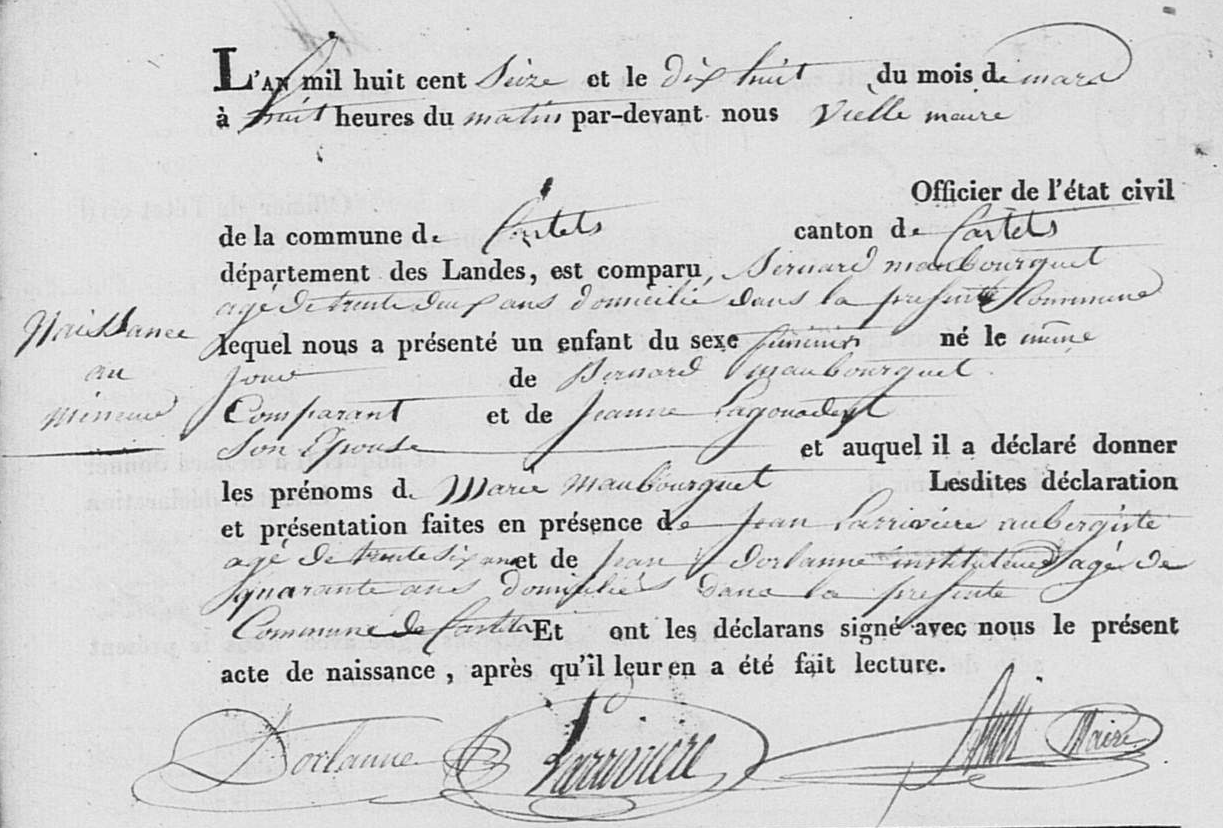 L'AN mil huit cent Seize et le dix huit du mois de mars
à huit heures du matin par-devant nous Vielle maire
Officier de l'état civil
de la commune de Castets canton de Castets
département des Landes, est comparu, Bernard maubourguet
agé de trente deux ans domicilié dans la presente Commune
Naissance
lequel nous a présenté un enfant du sexe feminin né le même
au
jour de Bernard Maubourguet
mineur
Comparant et de Jeanne
Son Epouse et auquel il a déclaré donner
les prénoms de Marie Maubourguet Lesdites déclaration
et présentation faites en présence de Jean Larriviere aubergiste
agé de trente six ans et de Jean Dorlanne instituteur agé de
quarante ans domiciliés dans la presente
Commune de Castets Et ont les déclarans signé avec nous le présent
acte de naissance, après qu'il leur en a été fait lecture.
Dorlanne Larriviere Maire